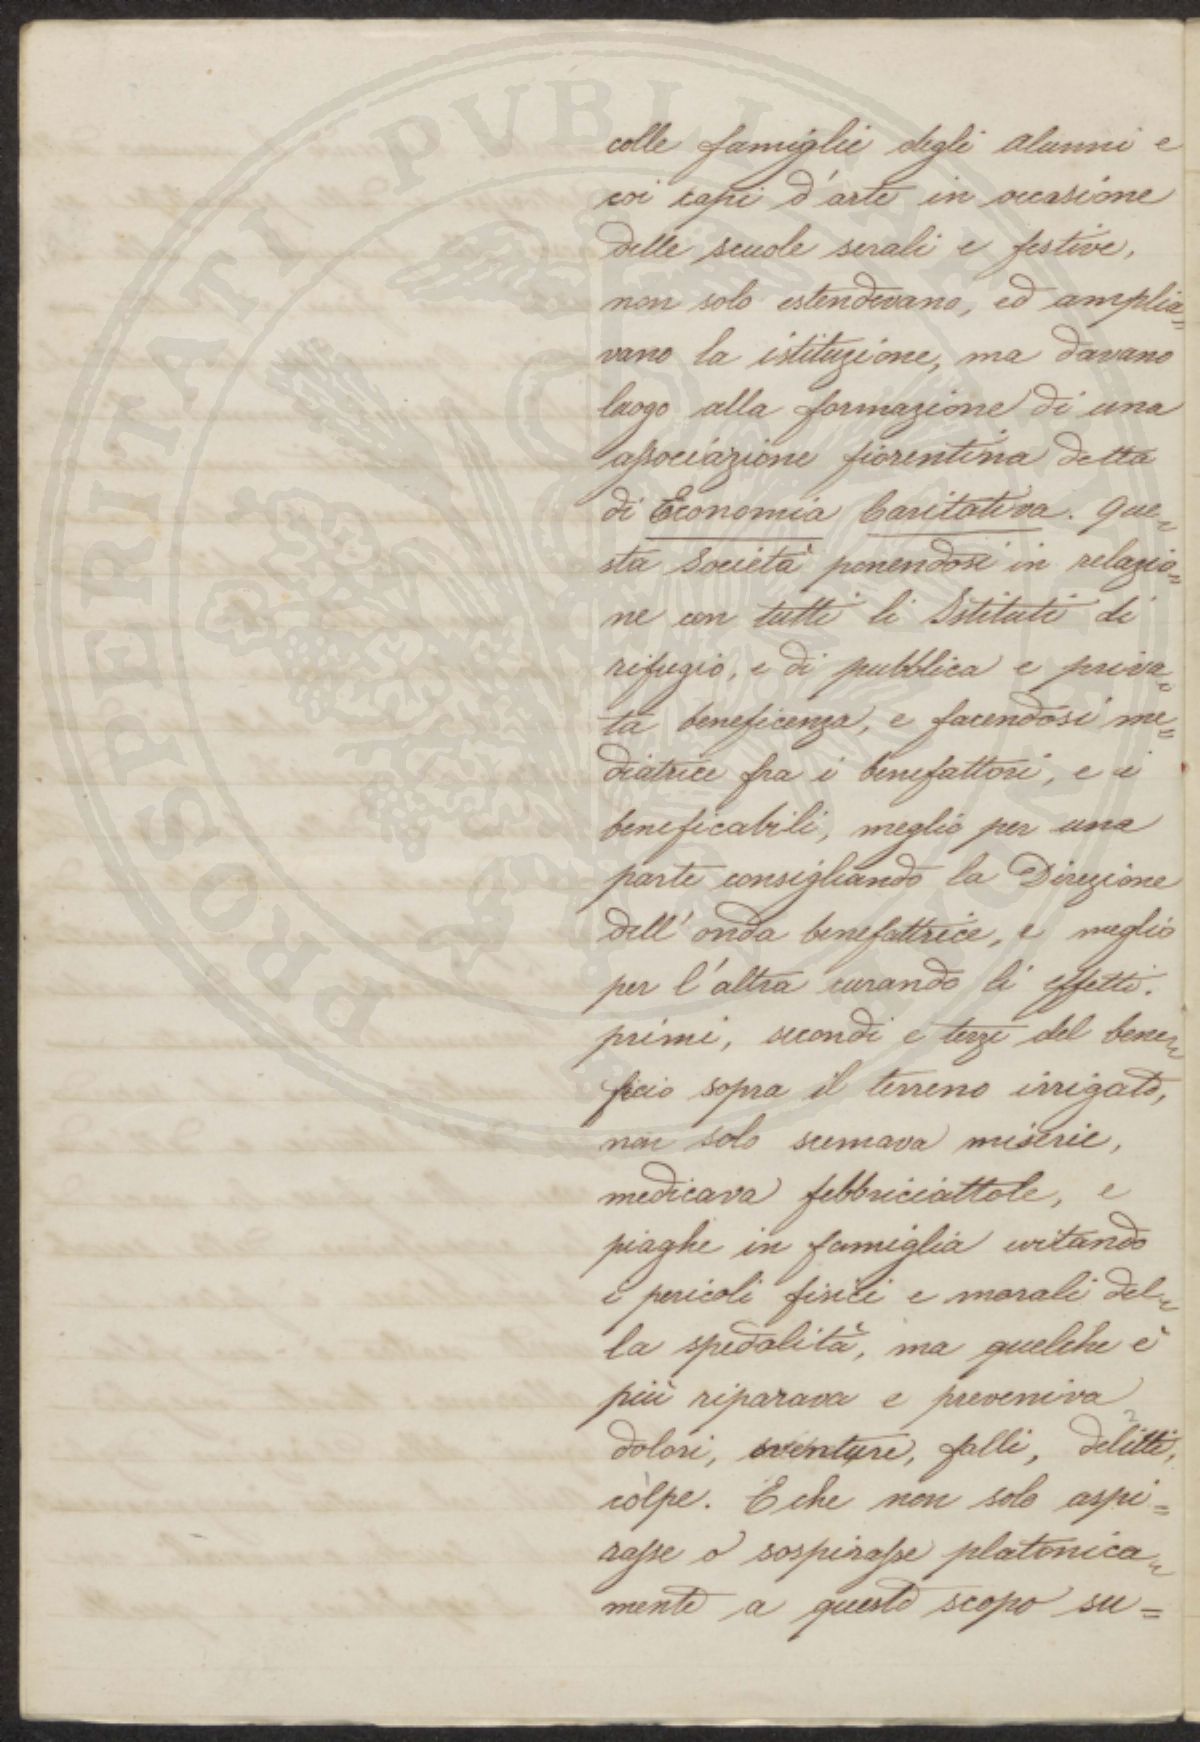 colle famiglie degli alunni e
coi capi d'arte in occasione
delle scuole serali e festive,
non solo estendevano, ed amplia=
vano la istituzione, ma davano
luogo alla formazione di una
associazione fiorentina detta
di Economia Caritativa. Que=
sta Società ponendosi in relazio=
ne con tutti li Istituti di
rifugio, e di pubblica e priva=
ta beneficenza, e facendosi me=
diatrice fra i benefattori, e i
beneficabili, meglio per una
parte consigliando la Direzione
dell'onda benefattrice, e meglio
per l'altra curando li effetti
primi, secondi e terzi del bene=
ficio sopra il terreno irrigato,
non solo scemava miserie,
medicava febbriciattole, e
piaghe in famiglia evitando
i pericoli fisici e morali del=
la spedalità, ma quelche è
più riparava e preveniva
dolori, sventure, falli, delitti,
colpe. E che non solo aspi=
rasse o sospirasse platonica=
mente a questo scopo su=
PROSPERITATI PVBLICAE